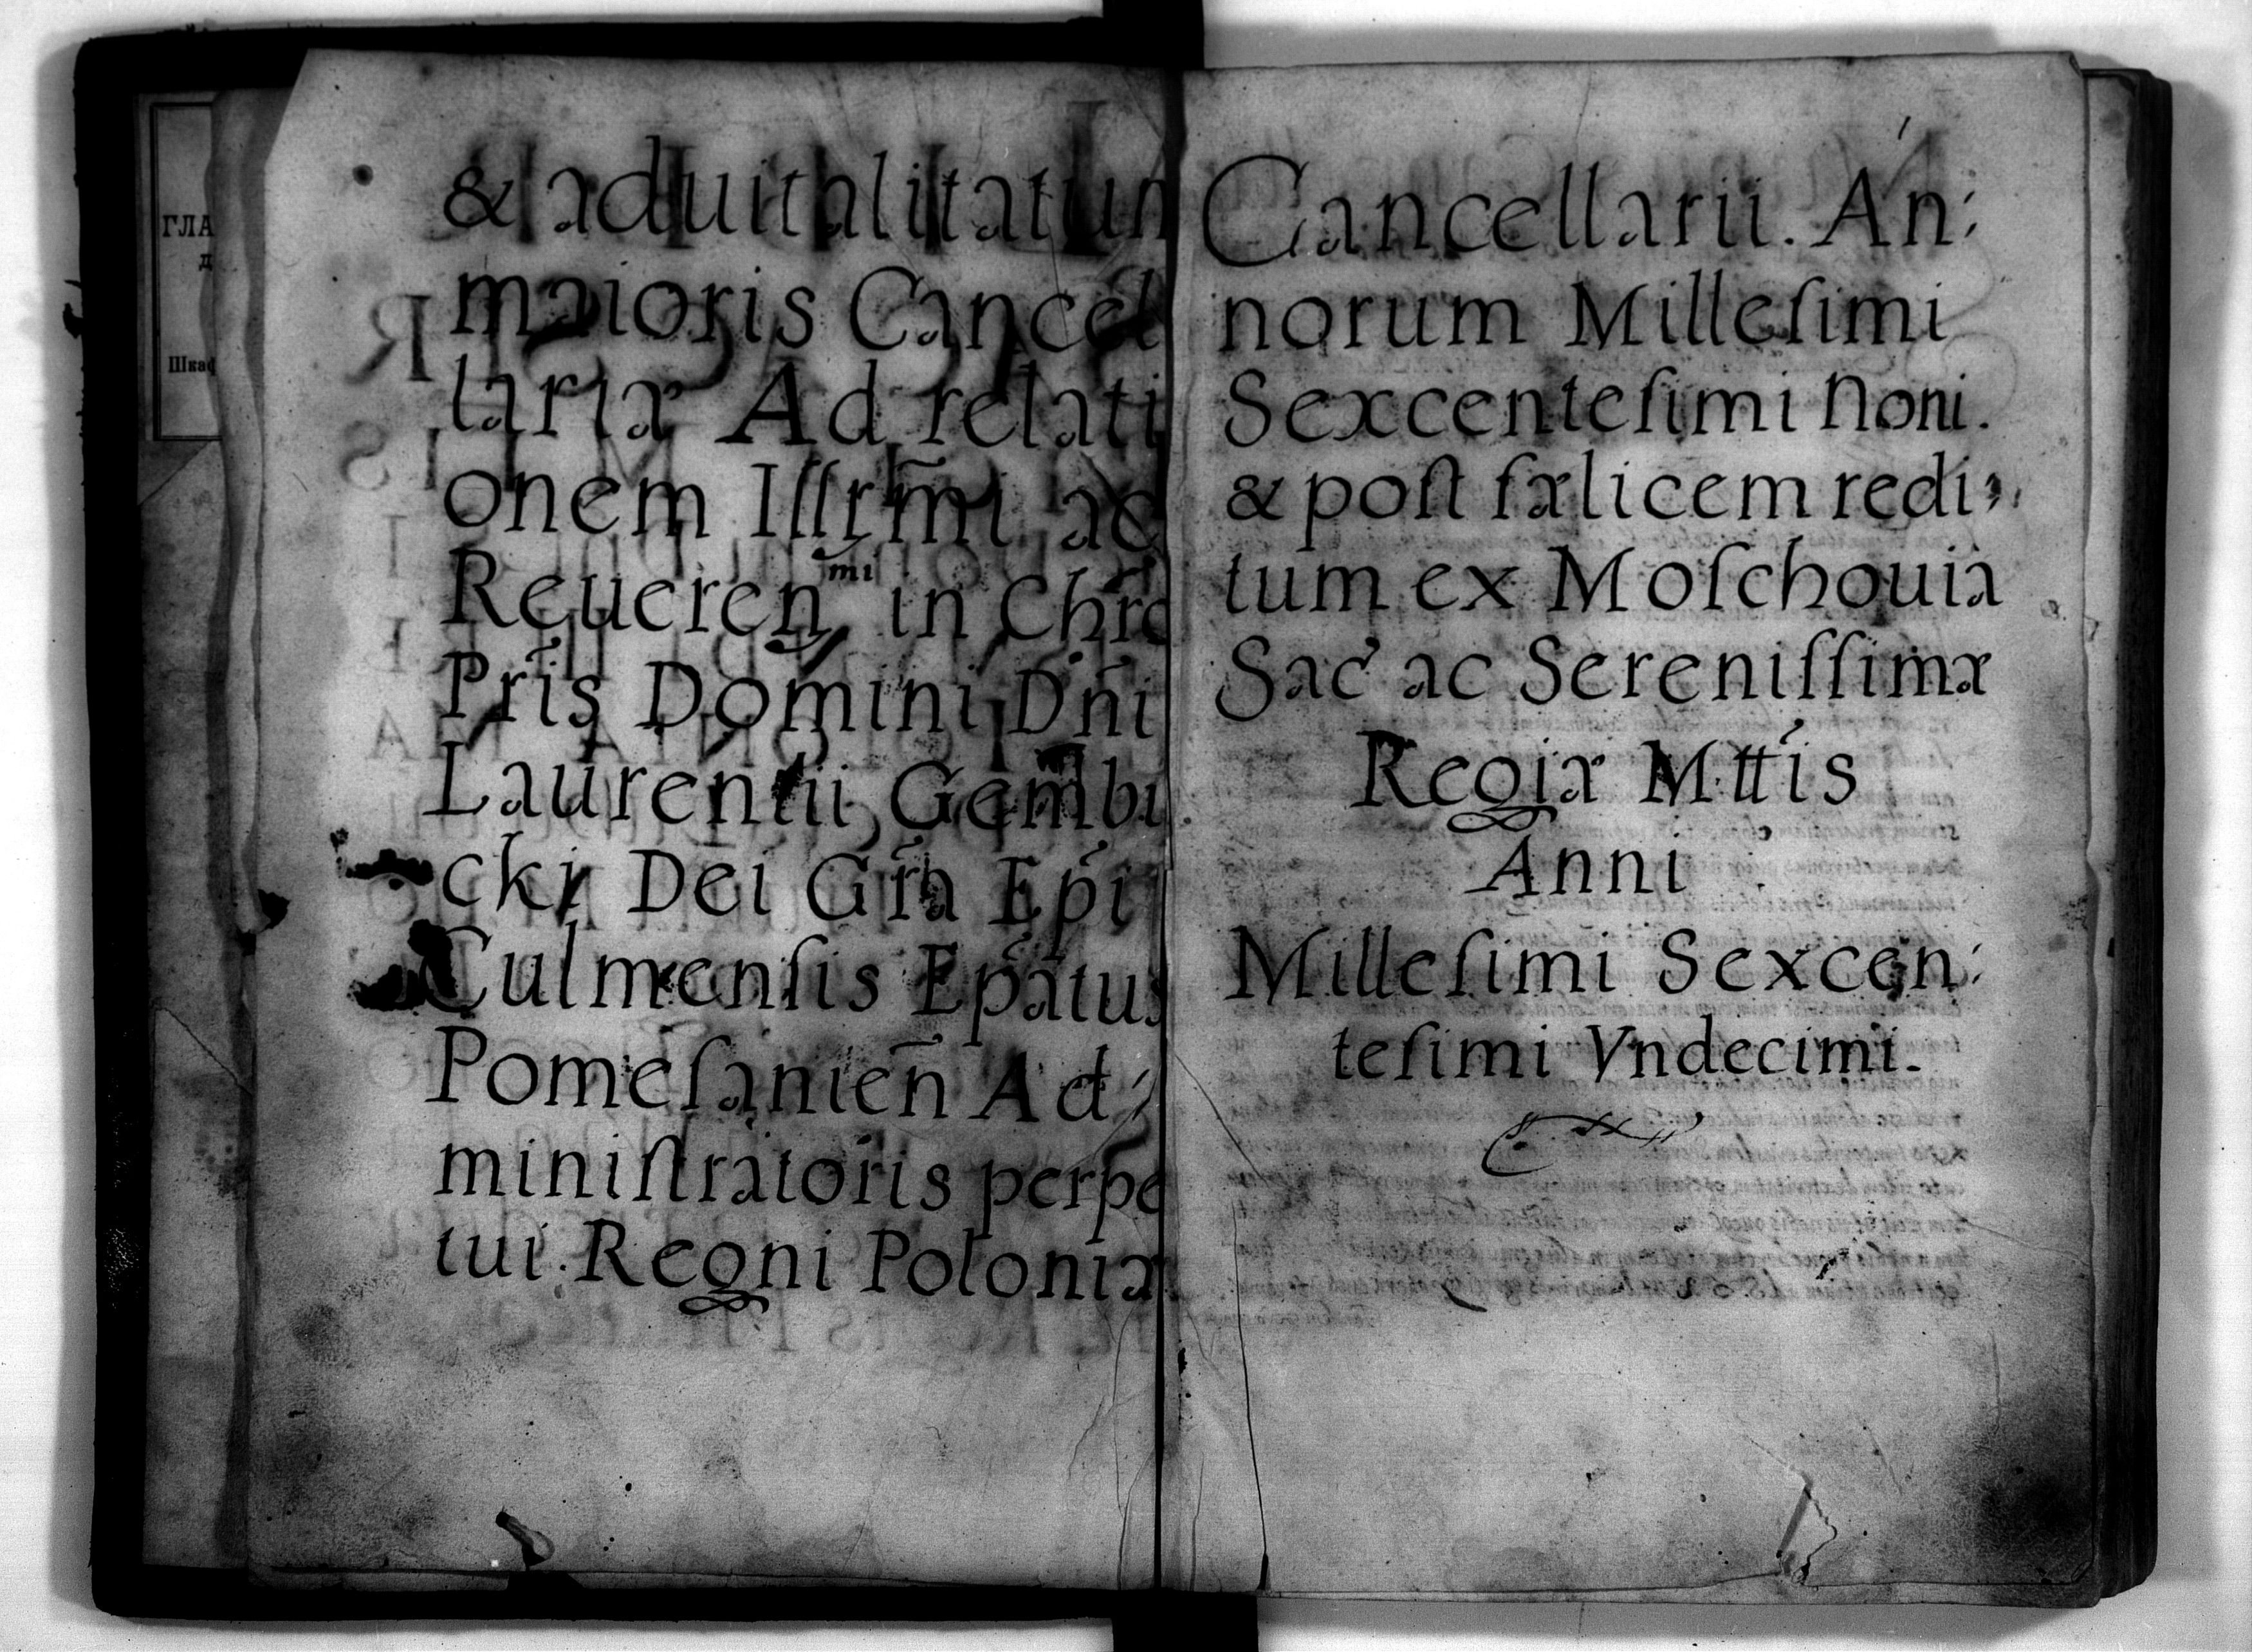 ГЛА
Д
Шкаф
& aduitalitatum
maioris Cancel
lariæ Ad relati
onem Illr̃mi ac
Reueren^mi in Chro
Pr̃is Domini Dñi
Laurentii Gembi
cki Dei Gr̃a Ep̃i
Culmenſis Ep̃atus
Pomeſanien̄ Ad
miniſtratoris perpe
tui Regni Poloniæ
Cancellarii. An:
norum Milleſimi
Sexcenteſimi Noni.
& poſt fælicem redi,
tum ex Moſchouia
Sac ac Sereniſſimæ
Regiæ Mttis
Anni
Milleſimi Sexcen:
teſimi Vndecimi.